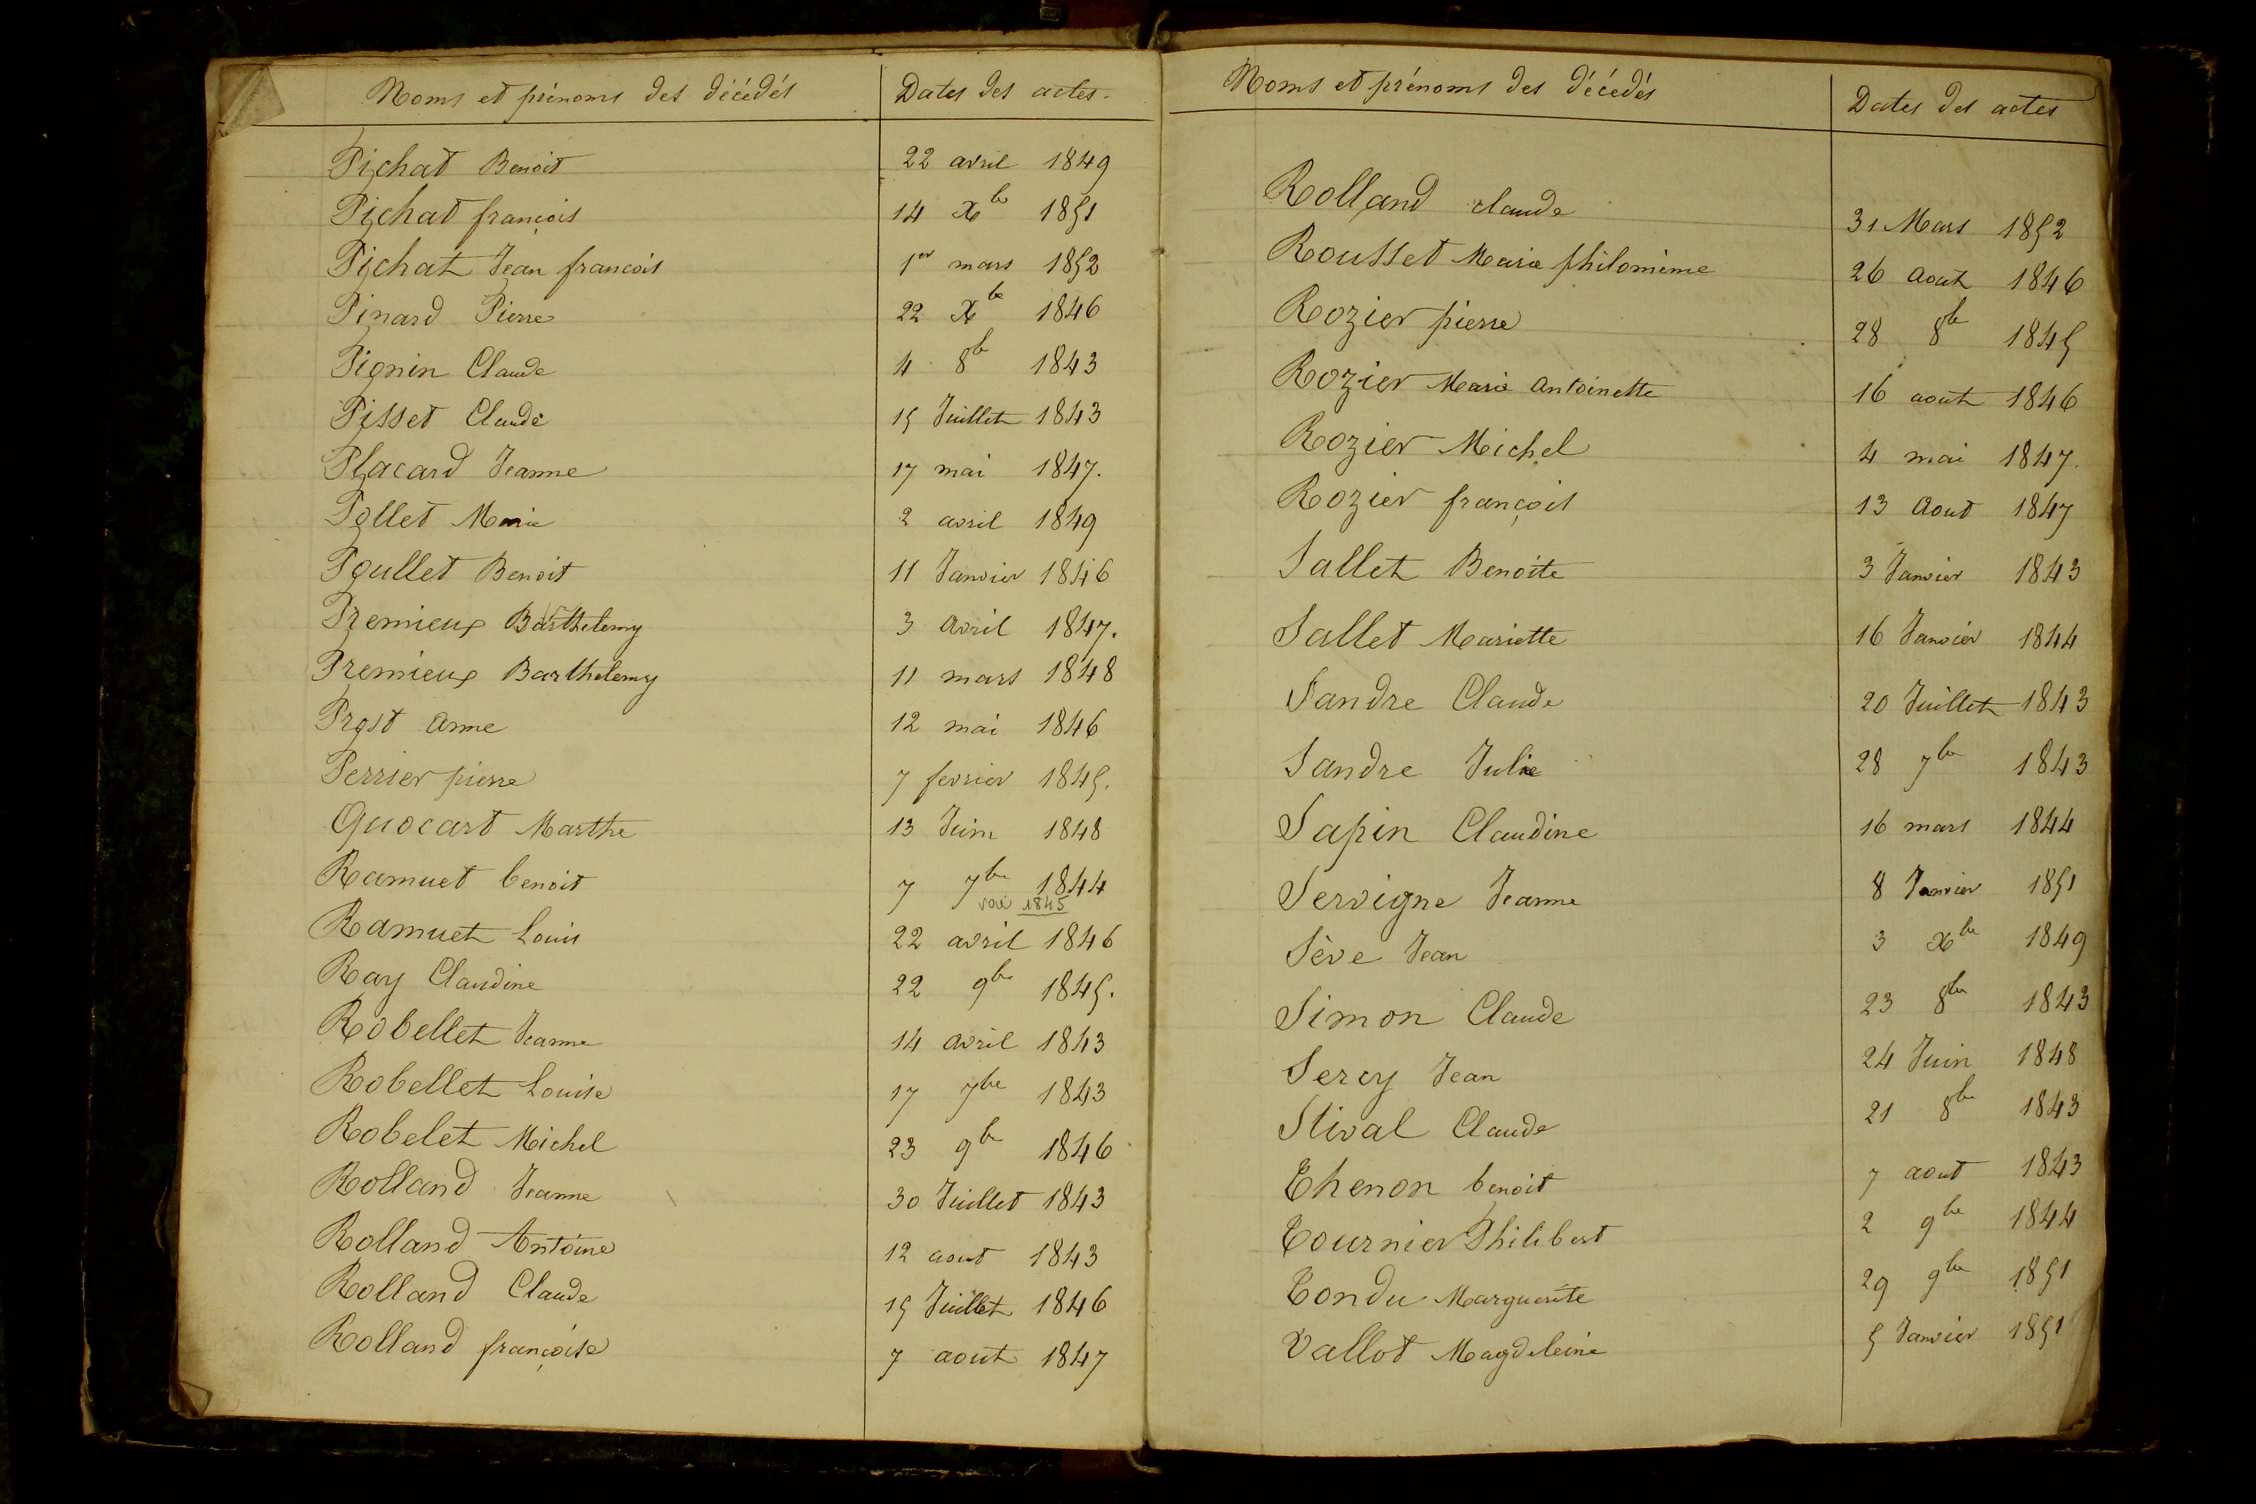 Noms et prénoms des décédés Dates des actes.
Pichat Benoit 22 avril 1849
Pichat françois 14 Xbe 1851
Pichat Jean francois 1er mars 1852
Pinard Pierre 22 Xbe 1846
Pignin Claude 4 8b 1843
Pisset Claude 15 Juillet 1843
Placard Jeanne 17 mai 1847.
Pollet Marie 2 avril 1849
Poullet Benoit 11 Janvier 1846
Premieux Barthelemy 3 avril 1847.
Premieux Barthelemy 11 mars 1848
Prost anne 12 mai 1846
Perrier pierre 7 fevrier 1845.
Quocart Marthe 13 Juin 1848
Ramuet benoit 7 7be 1844
voir 1845
Ramuet Louis 22 avril 1846
Ray Claudine 22 9be 1845.
Robellet Jeanne 14 avril 1843
Robellet Louise 17 7be 1843
Robelet Michel 23 9be 1846
Rolland Jeanne 30 Juillet 1843
Rolland Antoine 12 aout 1843
Rolland Claude 15 Juillet 1846
Rolland françoise 7 aout 1847
Noms et prénoms des décédés Dates des actes
Rolland claude 31 Mars 1852
Rousset Marie philomène 26 aout 1846
Rozier pierre 28 8be 1845
Rozier Marie antoinette 16 aout 1846
Rozier Michel 4 mai 1847.
Rozier françois 13 Aout 1847
Sallet Benoite 3 Janvier 1843
Sallet Mariette 16 Janvier 1844
Sandre Claude 20 Juillet 1843
Sandre Julie 28 7be 1843
Sapin Claudine 16 mars 1844
Servigne Jeanne 8 Janvier 1851
Sève Jean 3 Xbe 1849
Simon Claude 23 8be 1843
Sercy Jean 24 Juin 1848
Stival Claude 21 8be 1843
Thenon benoit 7 aout 1843
Tournier Philibert 2 9be 1844
Tondu Marguerite 29 9be 1851
Vallot Magdeleine 5 Janvier 1851